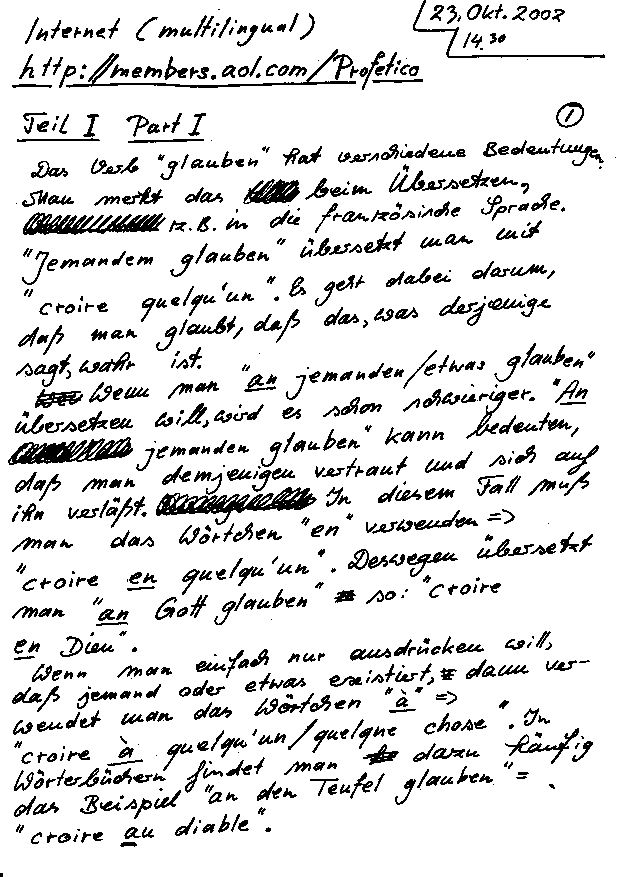 Internet (multilingual)
23. Okt. 2002
14.30
http://members.aol.com/Profetico
Teil I Part I
1
Das Verb "glauben" hat verschiedene Bedeutungen.
Man merkt das beim Übersetzen,
z.B. in die französische Sprache.
"Jemandem glauben" übersetzt man mit
"croire quelqu'un". Es geht dabei darum,
daß man glaubt, daß das, was derjenige
sagt, wahr ist.
Wenn man "an jemanden/etwas glauben"
übersetzen will, wird es schon schwieriger. "An
jemanden glauben" kann bedeuten,
daß man demjenigen vertraut und sich auf
ihn verläßt. In diesem Fall muß
man das Wörtchen "en" verwenden =>
"croire en quelqu'un". Deswegen übersetzt
man "an Gott glauben" so: "croire
en Dieu".
Wenn man einfach nur ausdrücken will,
daß jemand oder etwas existiert, dann ver-
wendet man das Wörtchen "à" =>
"croire à quelqu'un/quelque chose". In
Wörterbüchern findet man dazu häufig
das Beispiel "an den Teufel glauben" =
"croire au diable".